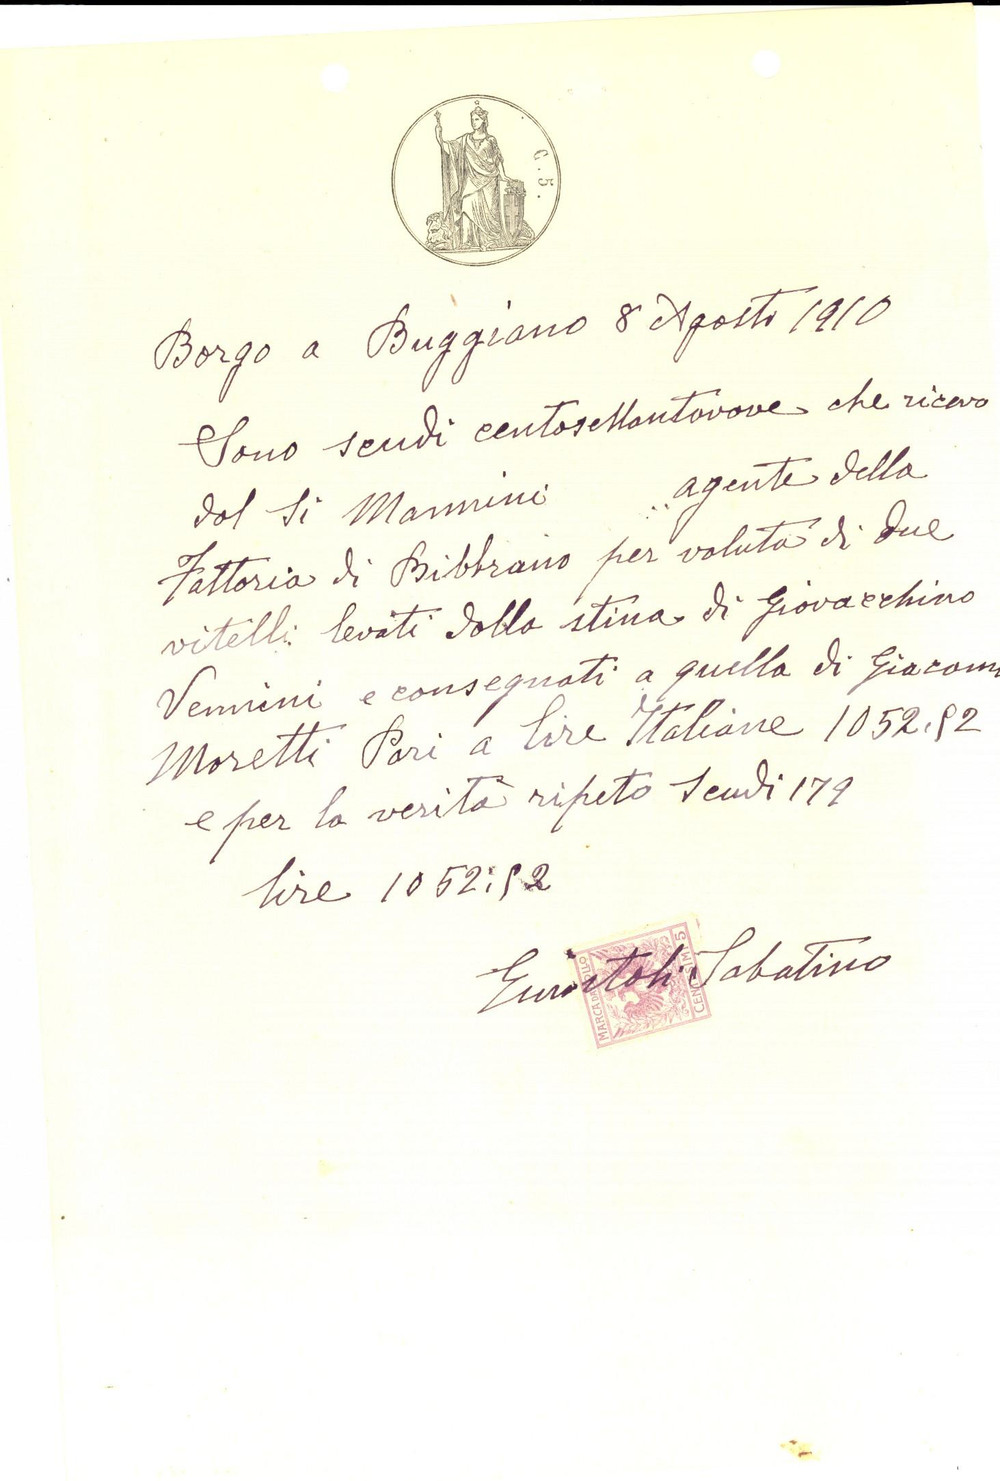 G. 5.
Borgo a Buggiano 8 Agosto 1910
Sono scudi centosettantanove che ricevo
dal Si Mannini agente della
Fattoria di Bibbiano per valuta di due
vitelli levati dalla stima di Giovacchino
Vennini e consegnati a quella di Giacomo
Moretti Pari a lire Italiane 1052.92
e per la verità ripeto scudi 179
lire 1052:92
Sabatino
MARCA DA BOLLO
CENTESIMI 5